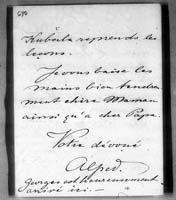 Kubala reprends les
leçons.
Je vous baise les
mains bien tendre
ment chère Maman
ainsi qu'a cher Papa.
Votre dévoué
Alfred.
Georges est heureusement
arrivé ici —